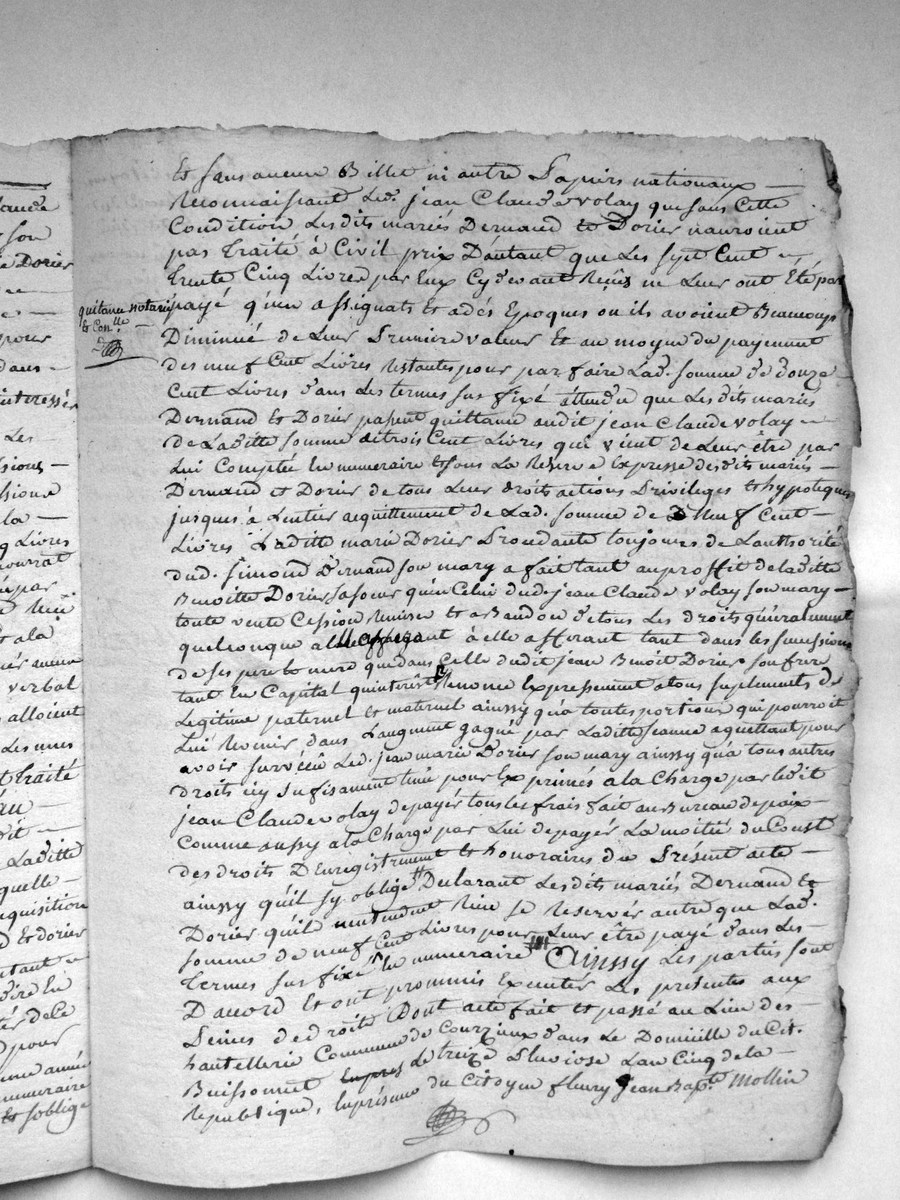 et sans aucun Billet ni autre Papiers nationaux —
reconnaissant led. jean Claude volay que sans Cette
Condition Les dits mariés Dernand et Dorier n'auroient
pas traité à Civil prix D'autant que Les sept Cent
trente Cinq Livres par Eux Cy devant Reçus ne Leur ont Eté par
payé qu'en assignats et a des Epoques ou ils avoient Beaucoup
Diminué de Leur Premiere valeur et au moyen du payement
des neuf Cent Livres restantes pour parfaire Lad. somme de douze
Cent Livres dans Les termes sus fixé attendu que Les dits mariés
Dernand et Dorier passent quittance audit jean Claude volay
de Laditte somme de trois Cent Livres qui vient de Leur être par
Lui Comptée En numeraire et sous La Réserve Expresse des dits mariés —
Dernand et Dorier de tous Leur droits actions Privileges et hypoteques
jusques à Lentier acquittement de Lad. somme de Neuf Cent —
Livres Laditte marie Dorier Procedante toujours de Lauthorité
dud. Simond Dernand son mary a fait tant au proffit de laditte
Benoitte Dorier sa sœur qu'en Celui dud. jean Claude volay son mary —
toute vente Cession Remise et abandon de tous Les droits généralement
quelconque à elle afferant tant dans les successions
de ses pere et mere que dans Celle dudit jean Benoit Dorier son frere
tant En Capital qu'interêts Renonce Expressement a tous suplements de
Legitime paternel et maternel ainssy qu'a toutes portions qui pourroit
Lui Revenir dans L'augment gagné par Laditte jeanne aquettant pour
avoir survecu Led. jean marie Dorier son mary ainssy qu'a tous autres
droits icy sufisament tenu pour Exprimés a la Charge par ledit
jean Claude volay de payer tous les frais fait au Bureau de paix —
Comme aussy a la Charge par Lui de payer La moitié du Coust
des droits D'Enregistrement et honoraires du Présent acte —
ainssy qu'il sy oblige Declarant Les dits mariés Dernand et
Dorier qu'il n'entendent Rien se Reservér autre que Lad.
somme de neuf Cent Livres pour Leur être payé dans Les
termes sus fixé En numeraire Ainssy Les parties sont
Dacord et ont prommis Executer Les presentes aux
Peines de droits Dont acte fait et passé au Lieu des
hautellerie Commune de Courzieux dans Le Domicille du Cit.
Buissonnet Le treize Pluviose Lan Cinq de la —
Republique, En présence du Citoyen fleury jean Bapte Mollin
quitance notarié
et Con.lle